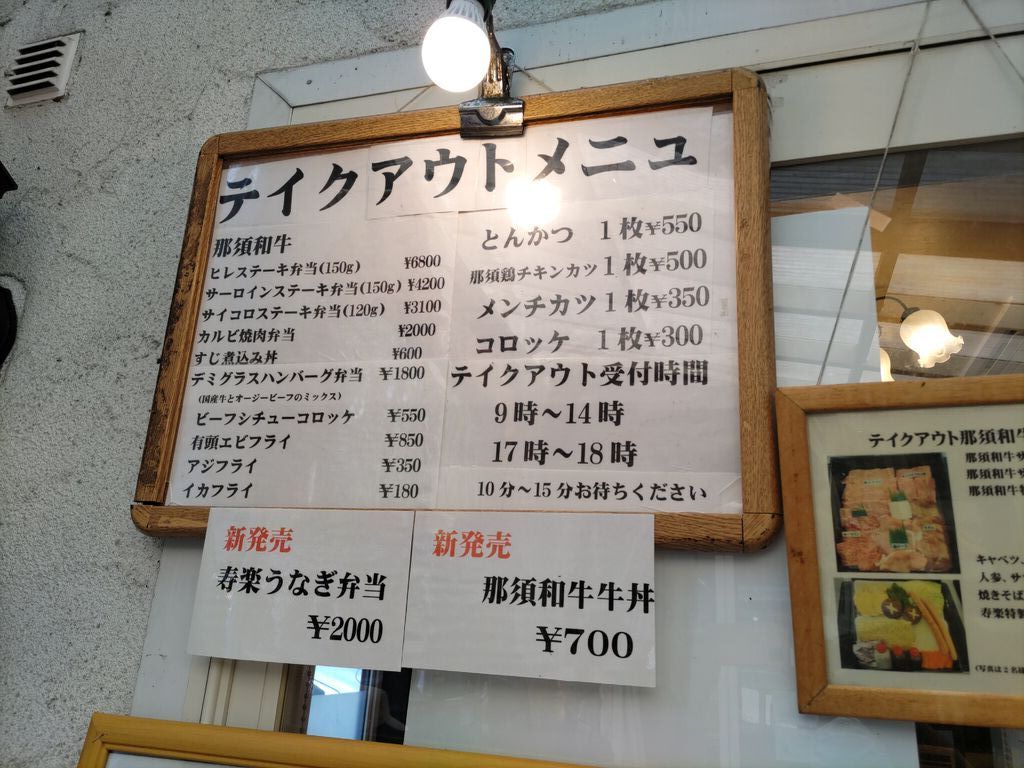 テイクアウトメニュ
那須和牛
ヒレステーキ弁当(150g) ¥6800
サーロインステーキ弁当(150g) ¥4200
サイコロステーキ弁当(120g) ¥3100
カルビ焼肉弁当 ¥2000
すじ煮込み丼 ¥600
デミグラスハンバーグ弁当 ¥1800
(国産牛とオージービーフのミックス)
ビーフシチューコロッケ ¥550
有頭エビフライ ¥850
アジフライ ¥350
イカフライ ¥180
とんかつ 1枚¥550
那須鶏チキンカツ 1枚¥500
メンチカツ 1枚¥350
コロッケ 1枚¥300
テイクアウト受付時間
9時～14時
17時～18時
10分～15分お待ちください
新発売
寿楽うなぎ弁当
¥2000
新発売
那須和牛牛丼
¥700
テイクアウト那須和牛
那須和牛サ
那須和牛サ
那須和牛特
キャベツ、
人参、サ
焼きそば
寿楽特製
(写真は2名様